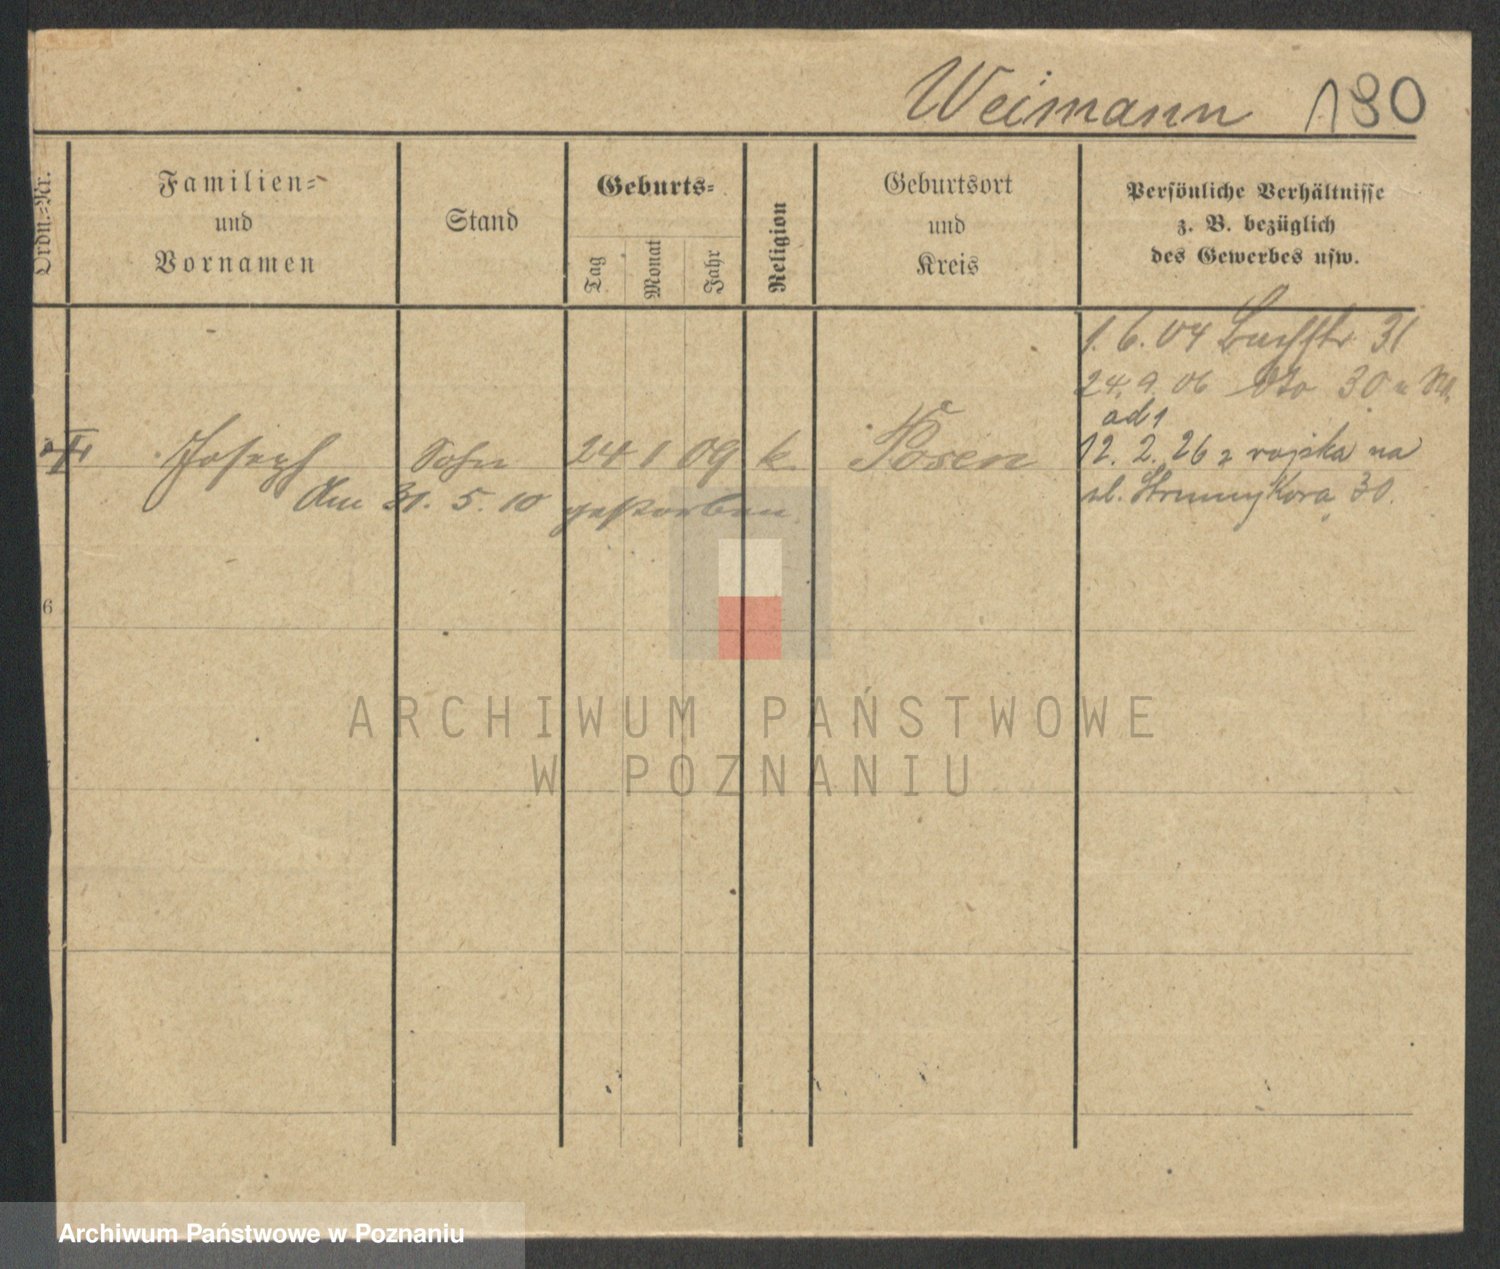 Weimann 180
Ordn.=Nr.
Familien=
und
Vornamen
Stand
Geburts=
Tag
Monat
Jahr
Religion
Geburtsort
und
Kreis
Persönliche Verhältnisse
z. B. bezüglich
des Gewerbes usw.
1. 6. 04 Bachstr 31
24. 9. 06 Dto 30
ad 1
Joseph Sohn 24 1 09 k. Posen
12. 2. 26 z wojska na
Am 31. 5. 10 gestorben.
ul. Strumykowa 30.
6
ARCHIWUM PAŃSTWOWE
W POZNANIU
Archiwum Państwowe w Poznaniu